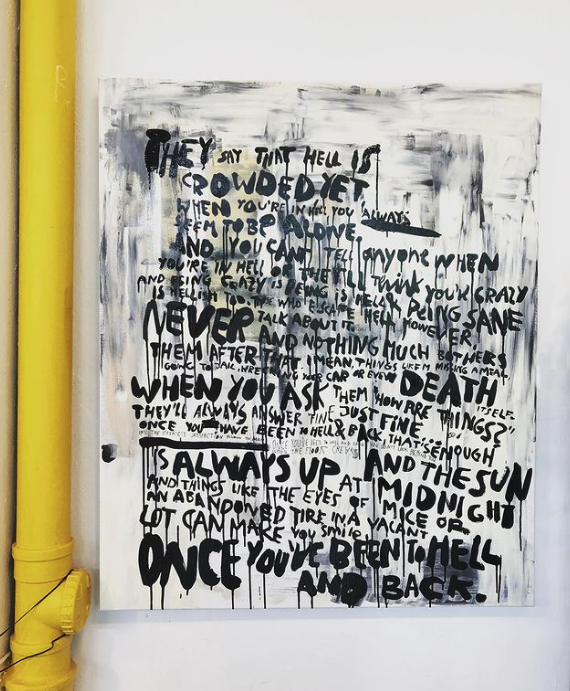 THEY SAY THAT HELL IS
CROWDED YET,
WHEN YOU'RE IN HELL YOU ALWAYS
SEEM TO BE ALONE.
AND YOU CAN'T TELL anyone WHEN
YOU'RE IN HELL OR THEY'LL THINK YOU'R CRAZY
AND BEING CRAZY IS BEING IS HELL & BEING SANE
IS HELLISH TOO. THE WHO ESCAPE HELL HOWEVER,
NEVER TALK ABOUT IT
AND NOTHING MUCH BOTHERS
THEM AFTER THAT. I MEAN, THINGS LIKE MISSING A MEAL,
GOING TO JAIL, YOUR CAR OR EVEN DEATH
ITSELF.
WHEN YOU ASK THEM "HOW ARE THINGS?"
THEY'LL ALWAYS ANSWER FINE, JUST FINE
ONCE YOU HAVE BEEN TO HELL & BACK, THAT'S ENOUGH
'S ALWAYS UP AT
AND THE SUN
MIDNIGHT
AND THINGS LIKE THE EYES OF MICE OR
AN ABANDONED TIRE IN A VACANT
LOT CAN MAKE you smile
ONCE YOU'VE BEEN TO HELL
AND BACK.